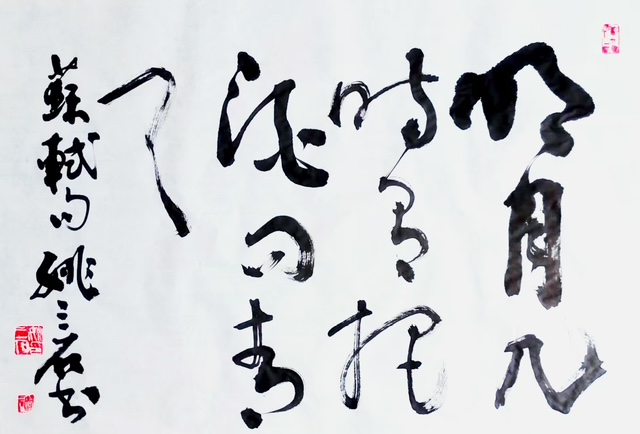 明月几
時有把
酒问青
天
蘇軾句姚三石书